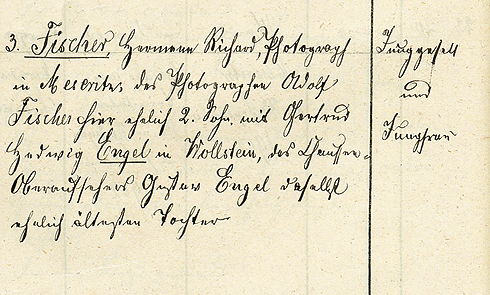 3. Fischer, Hermann Richard, Photograph
in Meseritz, des Photographen Adolf
Fischer hier ehelich 2. Sohn, mit Gertrud
Hedwig Engel in Wollstein, des Chaussee-
Oberaufsehers Gustav Engel daselbst
ehelich ältesten Tochter
Junggesell
und
Jungfrau